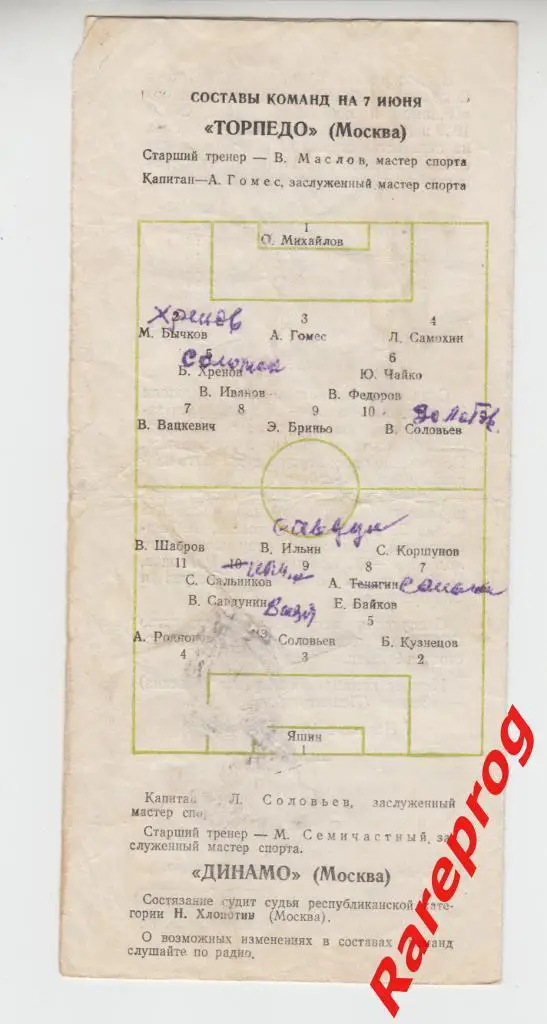 СОСТАВЫ КОМАНД НА 7 ИЮНЯ
«ТОРПЕДО» (Москва)
Старший тренер — В. Маслов, мастер спорта
Капитан—А. Гомес, заслуженный мастер спорта
1
О. Михайлов
Хренов
2 3 4
М. Бычков А. Гомес Л. Самохин
5 6
Б. Хренов Ю. Чайко
В. Иванов В. Федоров
7 8 9 10
В. Вацкевич Э. Бриньо В. Соловьев
В. Шабров В. Ильин С. Коршунов
11 10 9 8 7
С. Сальников А. Тенягин
В. Савдунин Е. Байков
5
А. Родионов Соловьев Б. Кузнецов
4 3 2
Яшин
1
Капитан Л. Соловьев, заслуженный
мастер спо
Старший тренер — М. Семичастный, за-
служенный мастер спорта.
«ДИНАМО» (Москва)
Состязание судит судья республиканской кате-
гории Н. Хлопотин (Москва).
О возможных изменениях в составах команд
слушайте по радио.
Rareprog